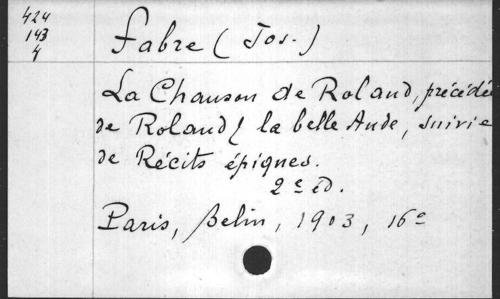 424
143
4
Fabre (Jos.)
La Chanson de Roland, précédée
de Roland & la belle Aude, suivie
de Récits épiques.
2e éd.
Paris, Belin, 1903, 16o